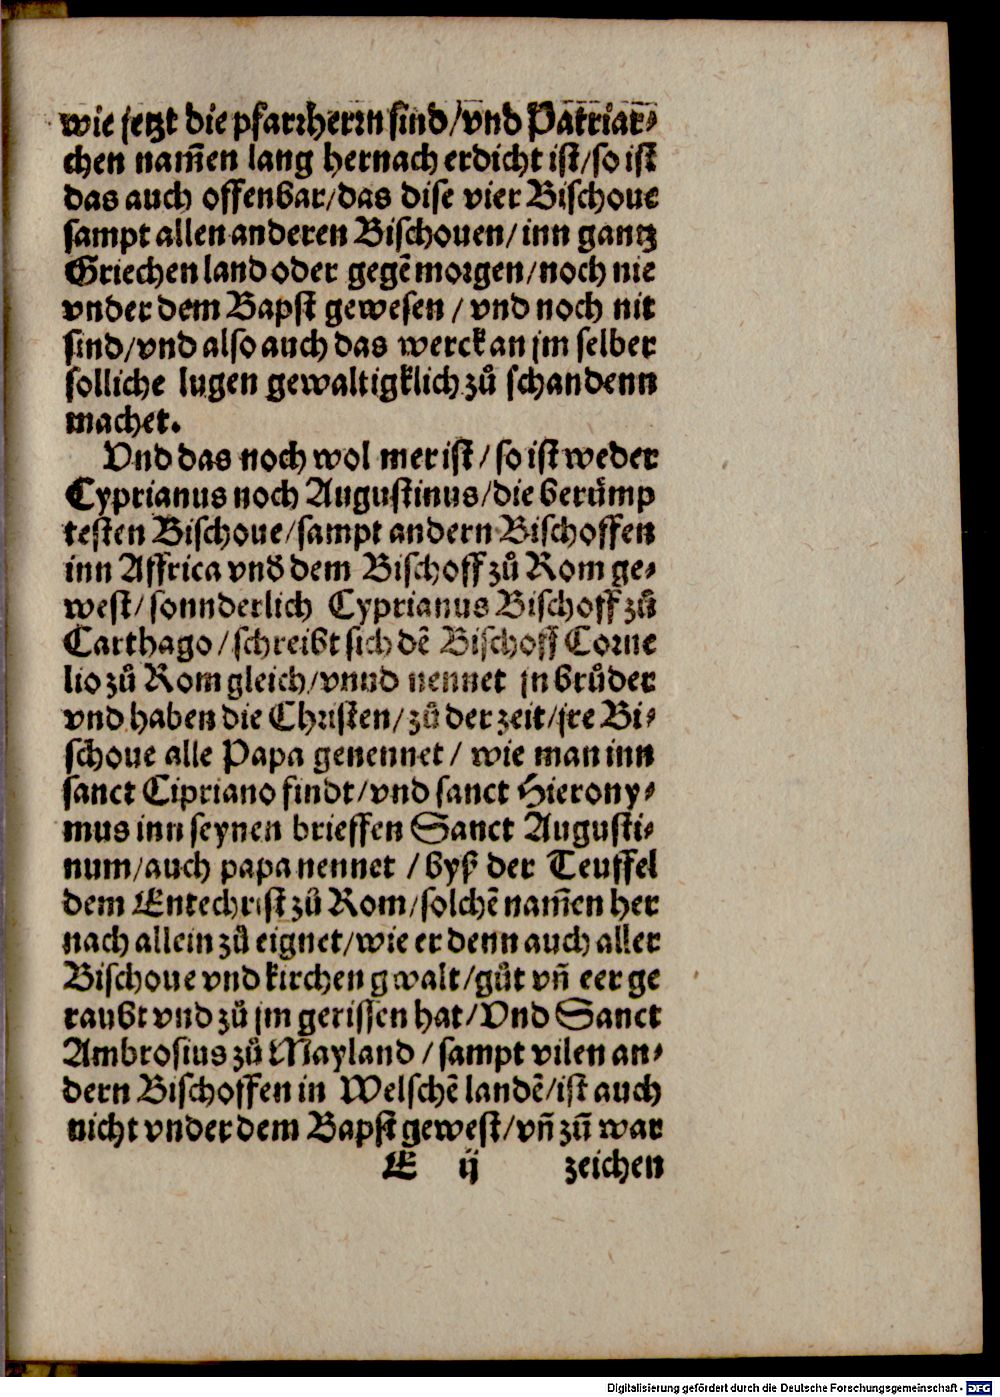 wie jetzt die pfarrherrn sind/vnd Patriar⸗
chen nam̃en lang hernach erdicht ist/so ist
das auch offenbar/das dise vier Bischoue
sampt allen anderen Bischouen/inn gantz
Griechen land oder gegẽ morgen/noch nie
vnder dem Bapst gewesen / vnd noch nit
sind/vnd also auch das werck an jm selber
solliche lugen gewaltigklich zů schandenn
machet.
Vnd das noch wol mer ist/so ist weder
Cyprianus noch Augustinus/die berůmp
testen Bischoue/sampt andern Bischoffen
inn Affrica vnđ dem Bischoff zů Rom ge⸗
west/sonnderlich Cyprianus Bischoff zů
Carthago/schreibt sich dẽ Bischoff Corne
lio zů Rom gleich/vnnd nennet jn brůder
vnd haben die Christen/zů der zeit/jre Bi⸗
schoue alle Papa genennet/ wie man inn
sanct Cipriano findt/vnd sanct Hierony⸗
mus inn seynen brieffen Sanct Augusti⸗
num/auch papa nennet /byß der Teuffel
dem Entechrist zů Rom/solchẽ nam̃en her
nach allein zů eignet/wie er denn auch aller
Bischoue vnd kirchen gwalt/gůt vñ eer ge
raubt vnd zů jm gerissen hat/Vnd Sanct
Ambrosius zů Mayland /sampt vilen an⸗
dern Bischoffen in Welschẽ landẽ/ist auch
nicht vnder dem Bapst gewest/vñ zů war
E ij zeichen
Digitalisierung gefördert durch die Deutsche Forschungsgemeinschaft - DFG